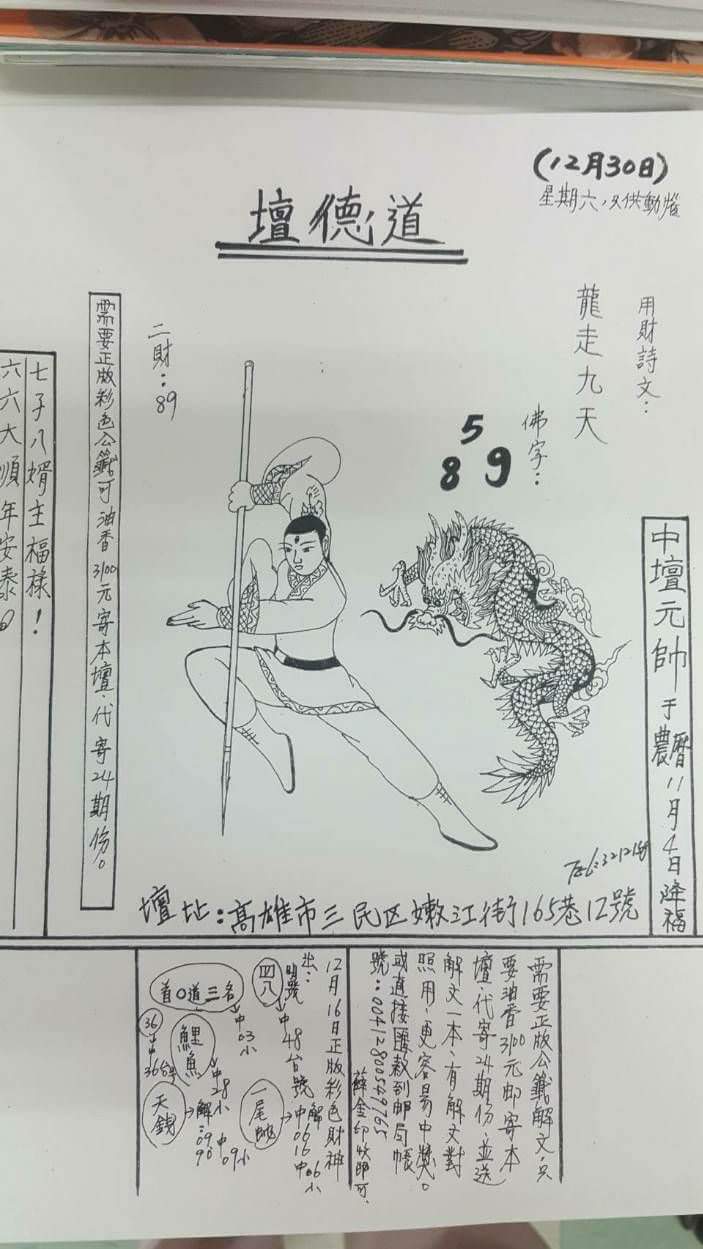 (12月30日)
星期六,只供動
道德壇
用財詩文：
龍走九天
佛字：
5
8 9
二財：89
需要正版彩色公籤可油香3100元寄本壇,代寄24期份。
七子八婿主福祿！
六六大順年安泰。
中壇元帥于農曆11月4日降福
壇址：高雄市三民区嫩江街165巷12號
需要正版公籤解文,只
要油香3100元邮寄本
壇,代寄24期份,並送
解文一本,有解文對
照用,更容易中獎。
或直接匯款到邮局帳
號：00412800549765
薛金印收即可.
12月16日正版彩色財神
出：
四八
號中48台號
首0道三名
中03小
鯉魚
中28小
36
中36台
天錢
解：09 90
中09小
一尾
解中06 16
中06小